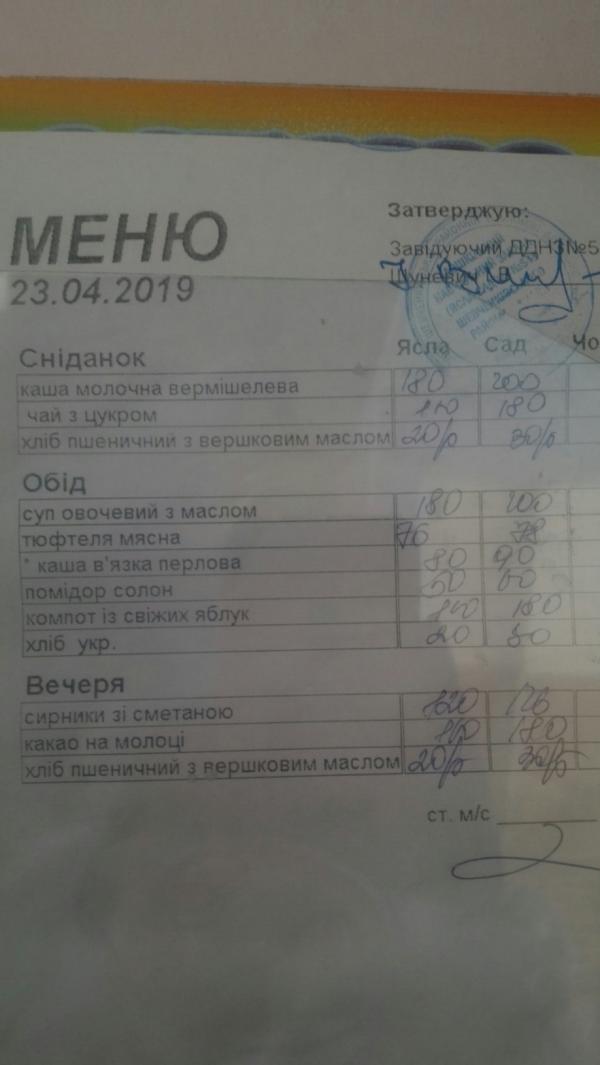 Затверджую:
МЕНЮ
Завідуючий ДДНЗ№5
Шуневич І.В.
23.04.2019
Сніданок Ясла Сад Чо
каша молочна вермішелева 180 200
чай з цукром 180
хліб пшеничний з вершковим маслом 20/5 30/5
Обід
суп овочевий з маслом 180 200
тюфтеля мясна 76 78
* каша в'язка перлова 80 90
помідор солон 50 60
компот із свіжих яблук 180
хліб укр. 20 50
Вечеря
сирники зі сметаною 120 126
какао на молоці 180
хліб пшеничний з вершковим маслом 20/5 30/5
ст. м/с